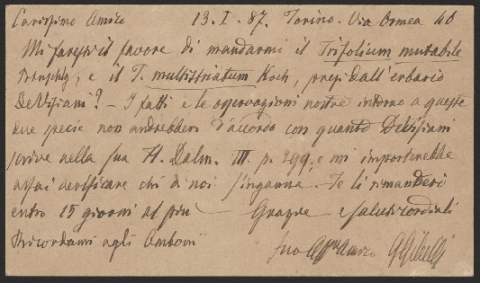 Carissimo Amico 13. I. 87. Torino. Via Ormea 40
Mi faresti il favore di mandarmi il Trifolium mutabile
Portenschlg, e il T. multistriatum Koch, presi dall'erbario
DeVisiani? – I fatti e le osservazioni nostre intorno a queste
due specie non andrebbero d'accordo con quanto DeVisiani
scrive nella sua Fl. Dalm. III. p. 299. e mi importerebbe
assai verificare chi di noi s'inganna. Te li rimanderò
entro 15 giorni al più Grazie e saluti cordiali
Ricordami agli
Suo Amico G Gibelli